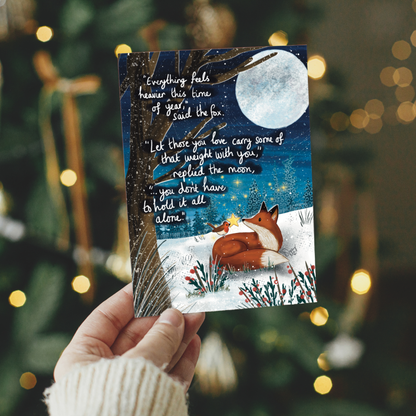 "Everything feels
heavier this time
of year,"
said the fox.
"Let those you love carry some of
that weight with you,"
replied the moon,
"...you don't have
to hold it all
alone."